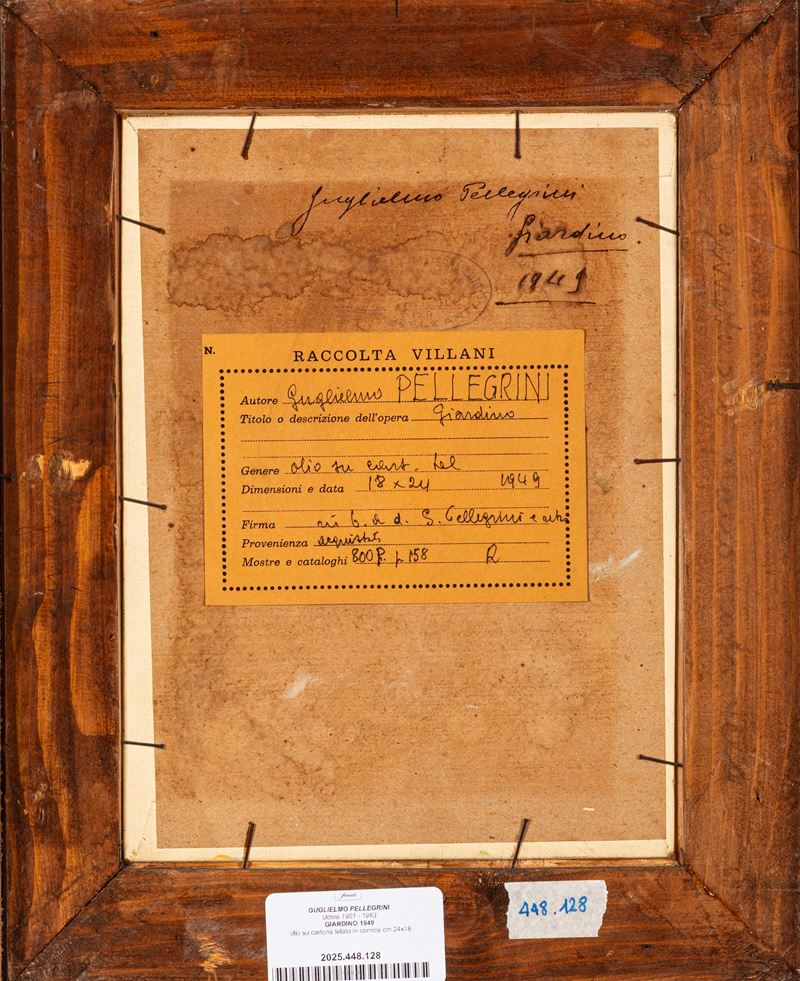 Guglielmo Pellegrini
Giardino.
1949
N.
RACCOLTA VILLANI
Autore Guglielmo PELLEGRINI
Titolo o descrizione dell'opera Giardino
Genere olio su cart. tel
Dimensioni e data 18 x 24 1949
Firma in b. a d. G. Pellegrini e
Provenienza acquisto
Mostre e cataloghi 800 £. p 158 R
448.128
GUGLIELMO PELLEGRINI
Udine 1901 - 1983
GIARDINO 1949
olio su cartone telato in cornice cm 24x18
2025.448.128